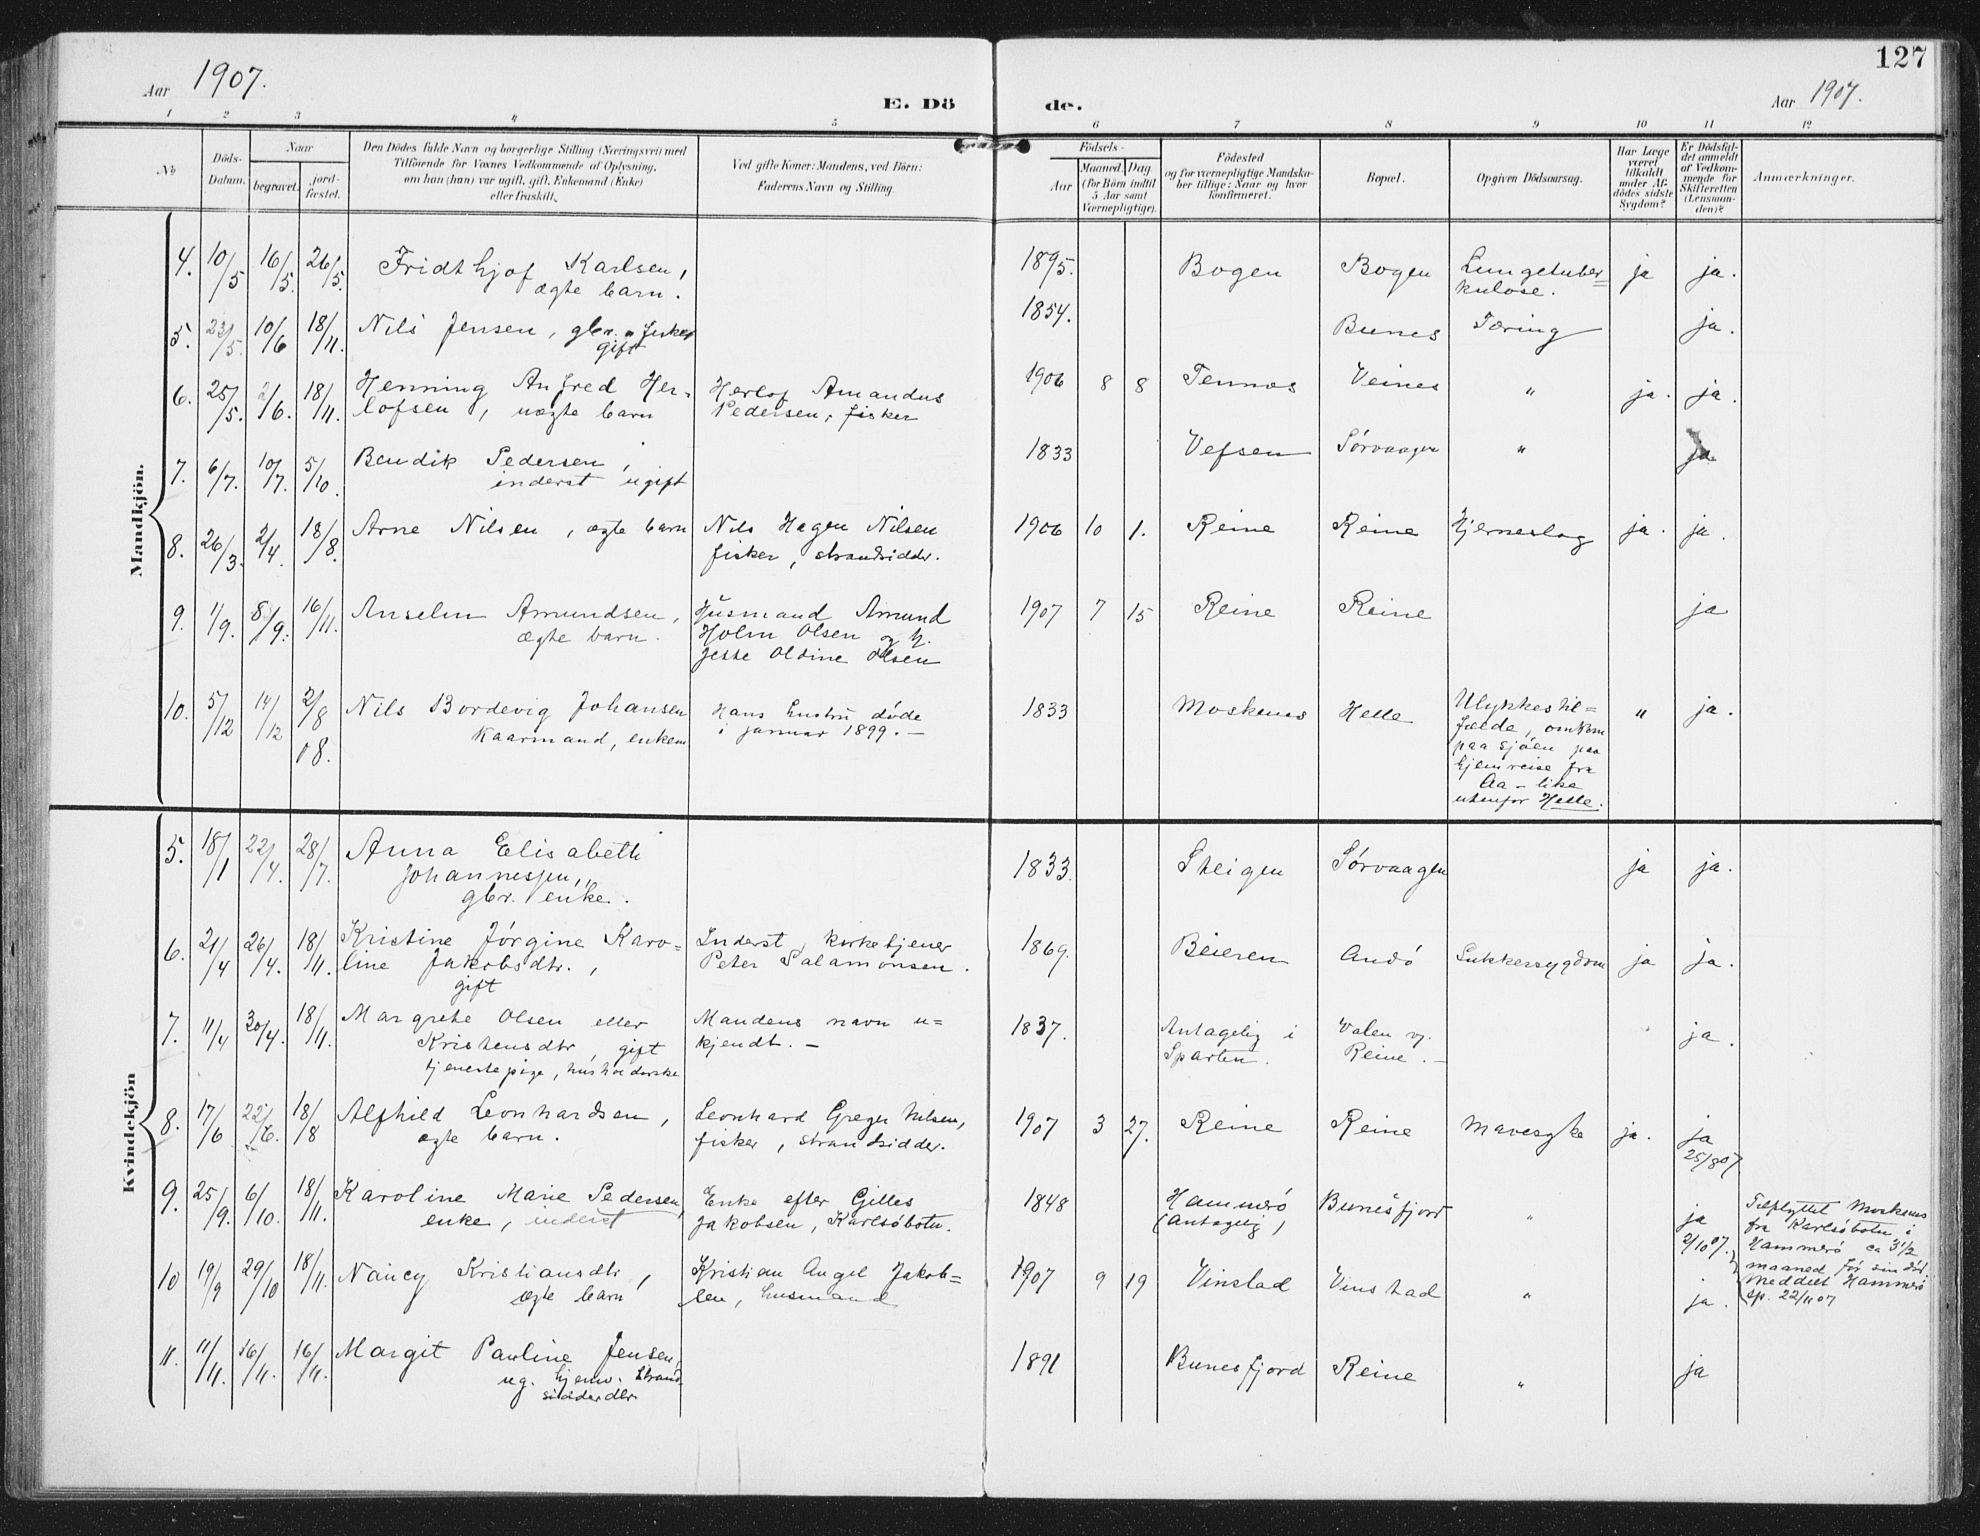 127
Aar 1907.
E. Dö de.
Aar 1907.
1 2 3 4 5 6 7 8 9 10 11 12
No
Döds-Datum.
Naar
begravet.
jord-fæstet.
Den Dödes fulde Navn og borgerlige Stilling (Næringsvei) med
Tilföiende for Voxnes Vedkommende af Oplysning,
om han (hun) var ugift, gift, Enkemand (Enke)
eller fraskilt.
Ved gifte Koner: Mandens, ved Börn:
Faderens Navn og Stilling.
Födsels-
Aar
Maaned. Dag.
(for Börn indtil
5 Aar samt
Værnepligtige).
Födested
og for værnepligtige Mandska-
ber tillige: Naar og hvor
konfirmeret.
Bopæl.
Opgiven Dödsaarsag.
Har Læge
været
tilkaldt
under Af-
dödes sidste
Sygdom?
Er Dödsfal-
det anmeldt
af Vedkom-
mende for
Skifteretten
(Lensman-
den)?
Anmærkninger.
Mandkjön.
4. 10/5 16/5. 26/5. Fridthjof Karlsen, 1895. Bogen Bogen Lungetuber= ja ja.
ægte barn. kulose.
5. 23/5. 10/6 18/11. Nils Jensen, gbr. " fisker 1854. Bunes Tæring ja.
gift
6. 25/5. 2/6. 18/11. Henning Anfred Her- Herlof Amandus 1906 8 8 Tennes Veines " ja. ja.
lofsen, uægte barn Pedersen, fisker
7. 6/7. 10/7. 5/10. Bendik Pedersen, 1833 Vefsen Sørvaagen " ja
inderst ugift
8. 26/3. 2/4. 18/8. Arne Nilsen, ægte barn Nils Hagen Nilsen 1906 10 1. Reine Reine Hjerneslag ja. ja.
fisker, strandsidder.
9. 1/9. 8/9. 16/11. Anselm Amundsen, Husmand Amund 1907 7 15 Reine Reine ja
ægte barn. Holm Olsen og h.
Jette Oldine Olsen
10. 5/12 14/12 2/8 08. Nils Bordevig Johansen Hans hustru døde 1833 Moskenes Helle Ulykkestil= " ja.
Kaarmand, enkem i januar 1899. — fælde, omkom
paa sjøen paa
hjemreise fra
Aa - like
utenfor Helle.
Kvindekjön
5. 18/1 22/4. 28/7. Anna Elisabeth 1833. Steigen Sørvaagen ja ja.
Johannessen,
gbr. enke.
6. 21/4 26/4. 18/11. Kristine Jørgine Karo= Inderst, kirketjener 1869. Beieren Andø Sukkersygdom ja ja.
line Jakobsdtr., Peter Salamonsen.
gift
7. 11/4 30/4. 18/11. Margrete Olsen eller Mandens navn u= 1837. Antagelig i Valen v. ja.
Kristensdtr, gift kjendt. — Sparten. Reine. -
tjenestepige, husholderske
8. 17/6 22/6. 18/8 Alfhild Leonhardsen, Leonhard Greger Nilsen, 1907 3 27. Reine Reine Mavesyke ja. ja
ægte barn. fisker, strandsidder. 25/8 07
9. 25/9. 6/10. 18/11. Karoline Marie Pedersen, Enke efter Gilles 1848 Hammerø Bunesfjord " ja
enke, inderst Jakobsen, Karlsøbotn. (antagelig) 2/10 07.
Tilflyttet Moskenes
fra Karlsøbotn i
Hammerø ca 3 1/2
maaned før sin død.
Meddelt Hammerø
sp. 22/11 07
10 19/9 29/10 18/11. Nancy Kristiansdtr, Kristian Angel Jakob= 1907 9 19 Vinstad Vinstad " ja.
ægte barn sen, husmand
11. 11/11. 16/11. 16/11. Margit Pauline Jensen, 1891 Bunesfjord Reine " ja
ug. hjemv. Strand-
sidderdtr